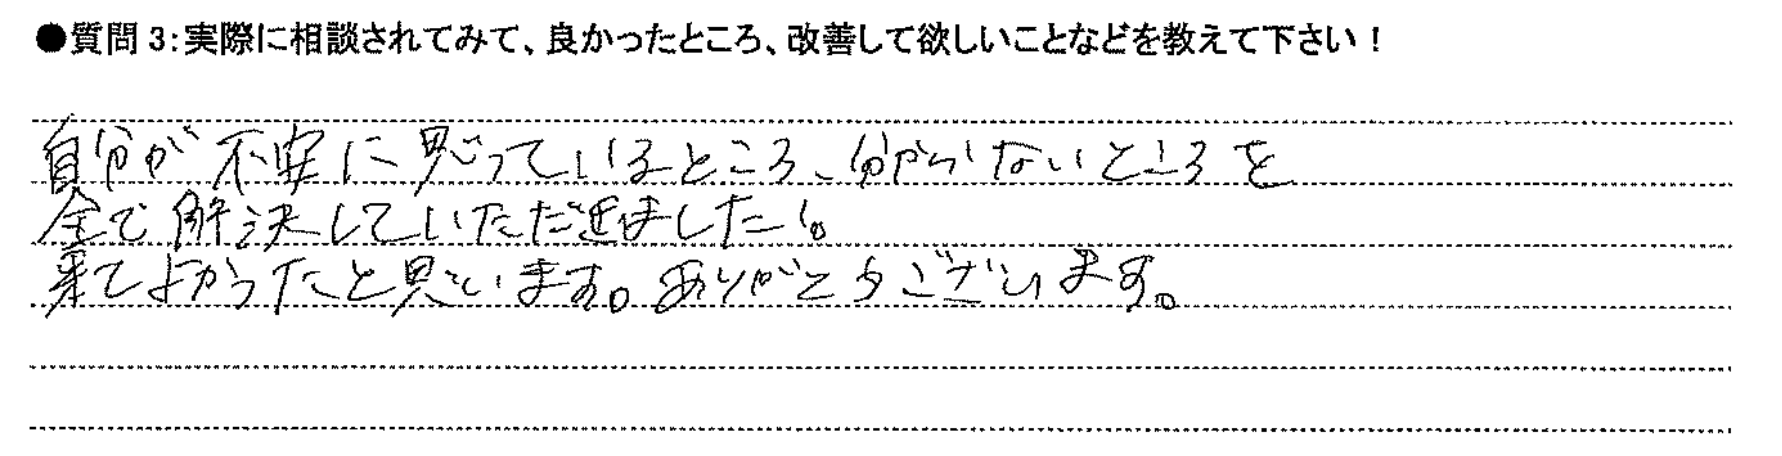 ●質問 3:実際に相談されてみて、良かったところ、改善して欲しいことなどを教えて下さい！
自分が不安に思っているところ、分からないところを
全て解決していただきました。
来てよかったと思います。ありがとうございます。